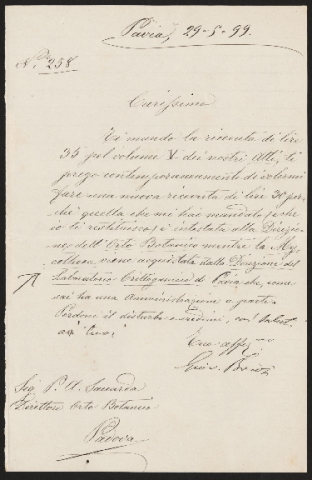 Pavia, 29-5-99.
N. di 258
Carissimo
Ti mando la ricevuta di lire
35 pel volume V dei nostri Atti, ti
prego contemporaneamente di volermi
fare una nuova ricevuta di lire 30 per-
chè quella che mi hai mandato (e che
io ti restituisco) è intestata alla Direzio-
ne dell'Orto Botanico mentre la My-
cotheca viene acquistata dalla Direzione del
Laboratorio Crittogamico di Pavia che, come
sai ha una Amministrazione a parte.
Perdona il disturbo e credimi, coi saluti
ai tuoi,
Tuo aff.
Giov. Briosi
Sig. P. A. Saccardo
Direttore Orto Botanico
Padova